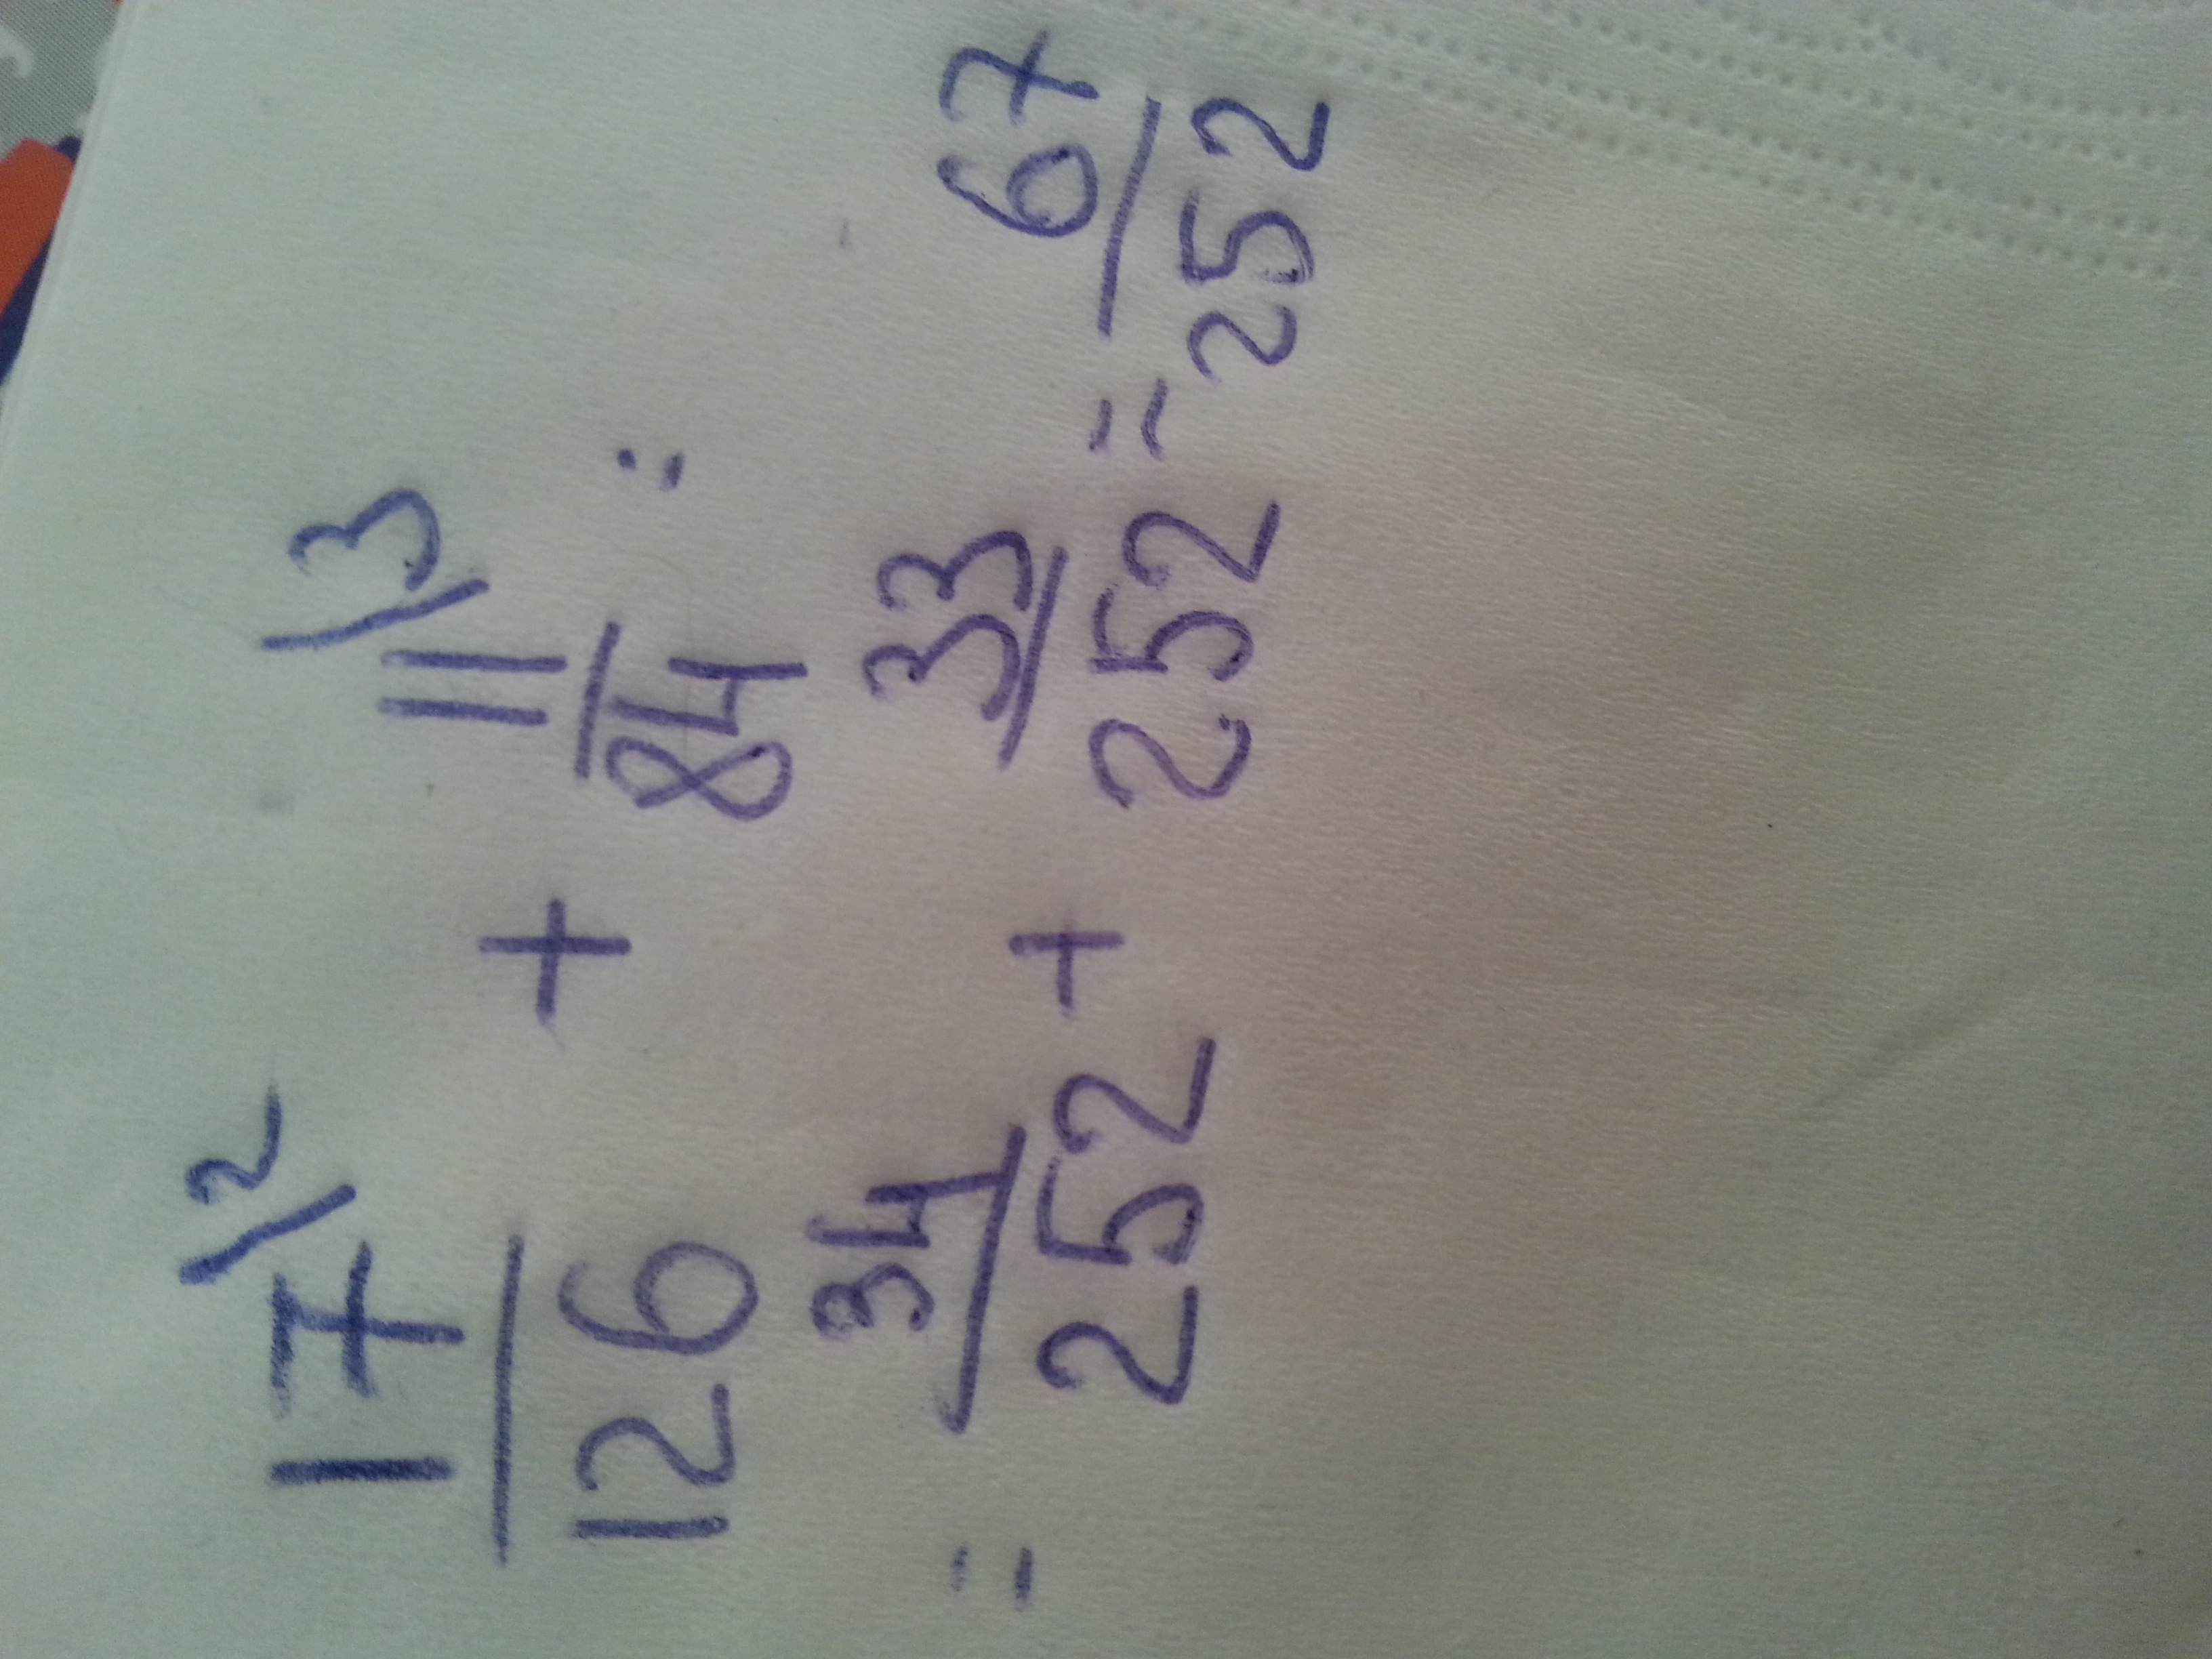 17/126 ²⁄ + 11/84 ³⁄ =
= 34/252 + 33/252 = 67/252